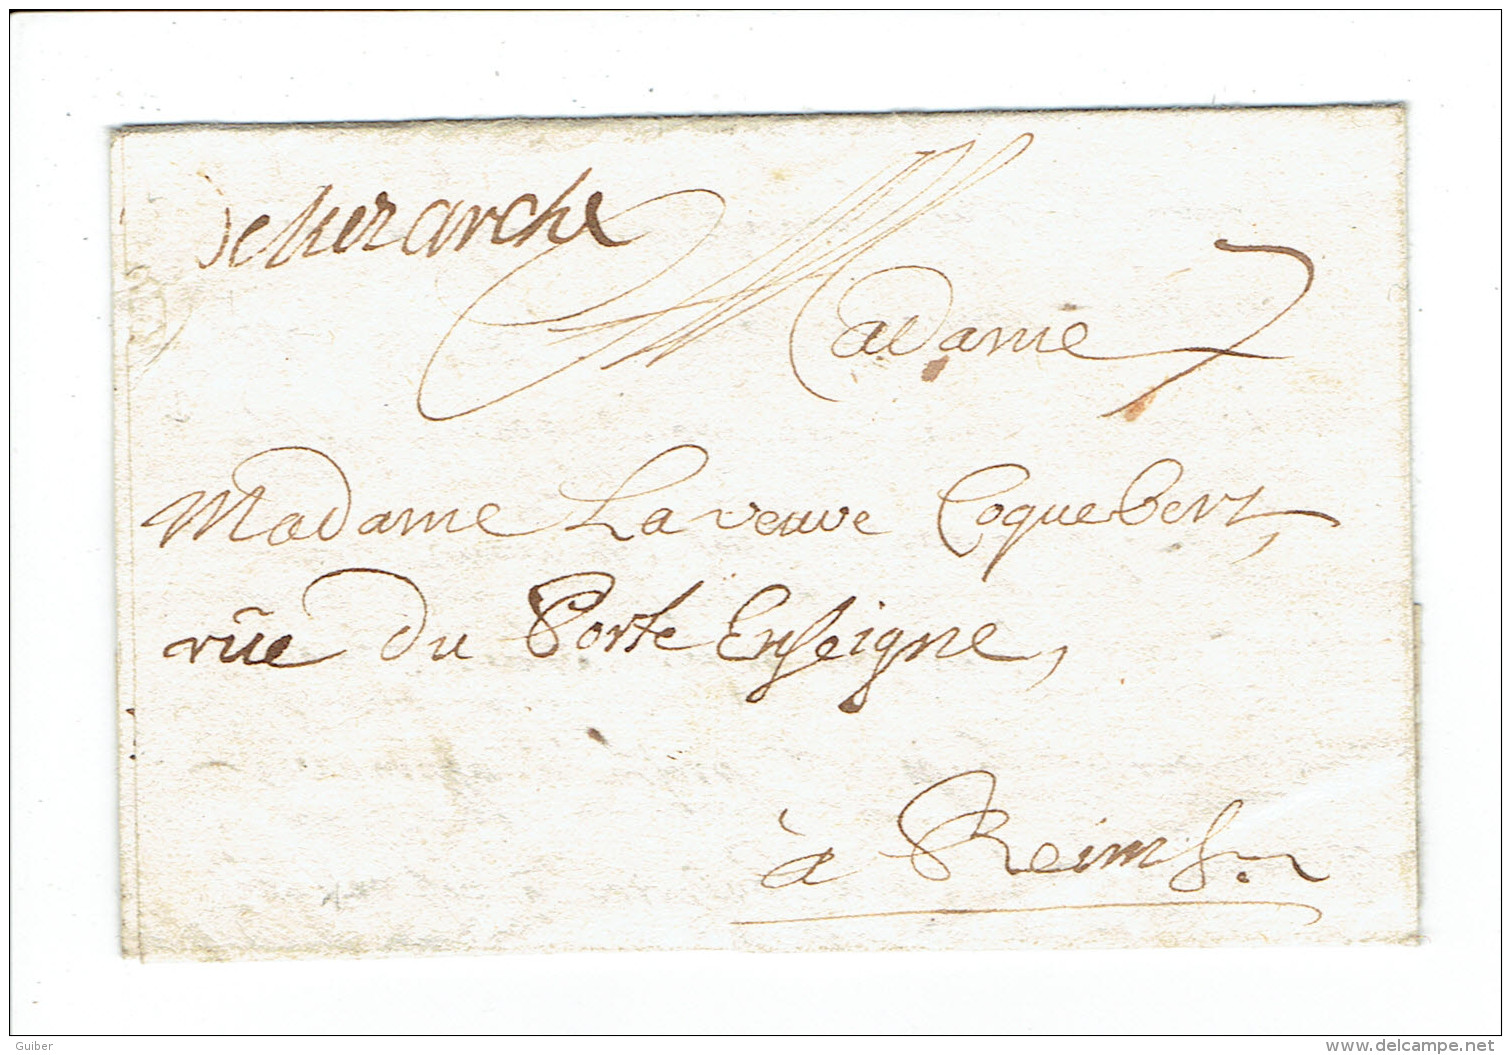 De Mezarche
Madame
Madame La veuve Coquebert,
rüe du Porte Enseigne,
à Reims.
Guiber
delcampe.net